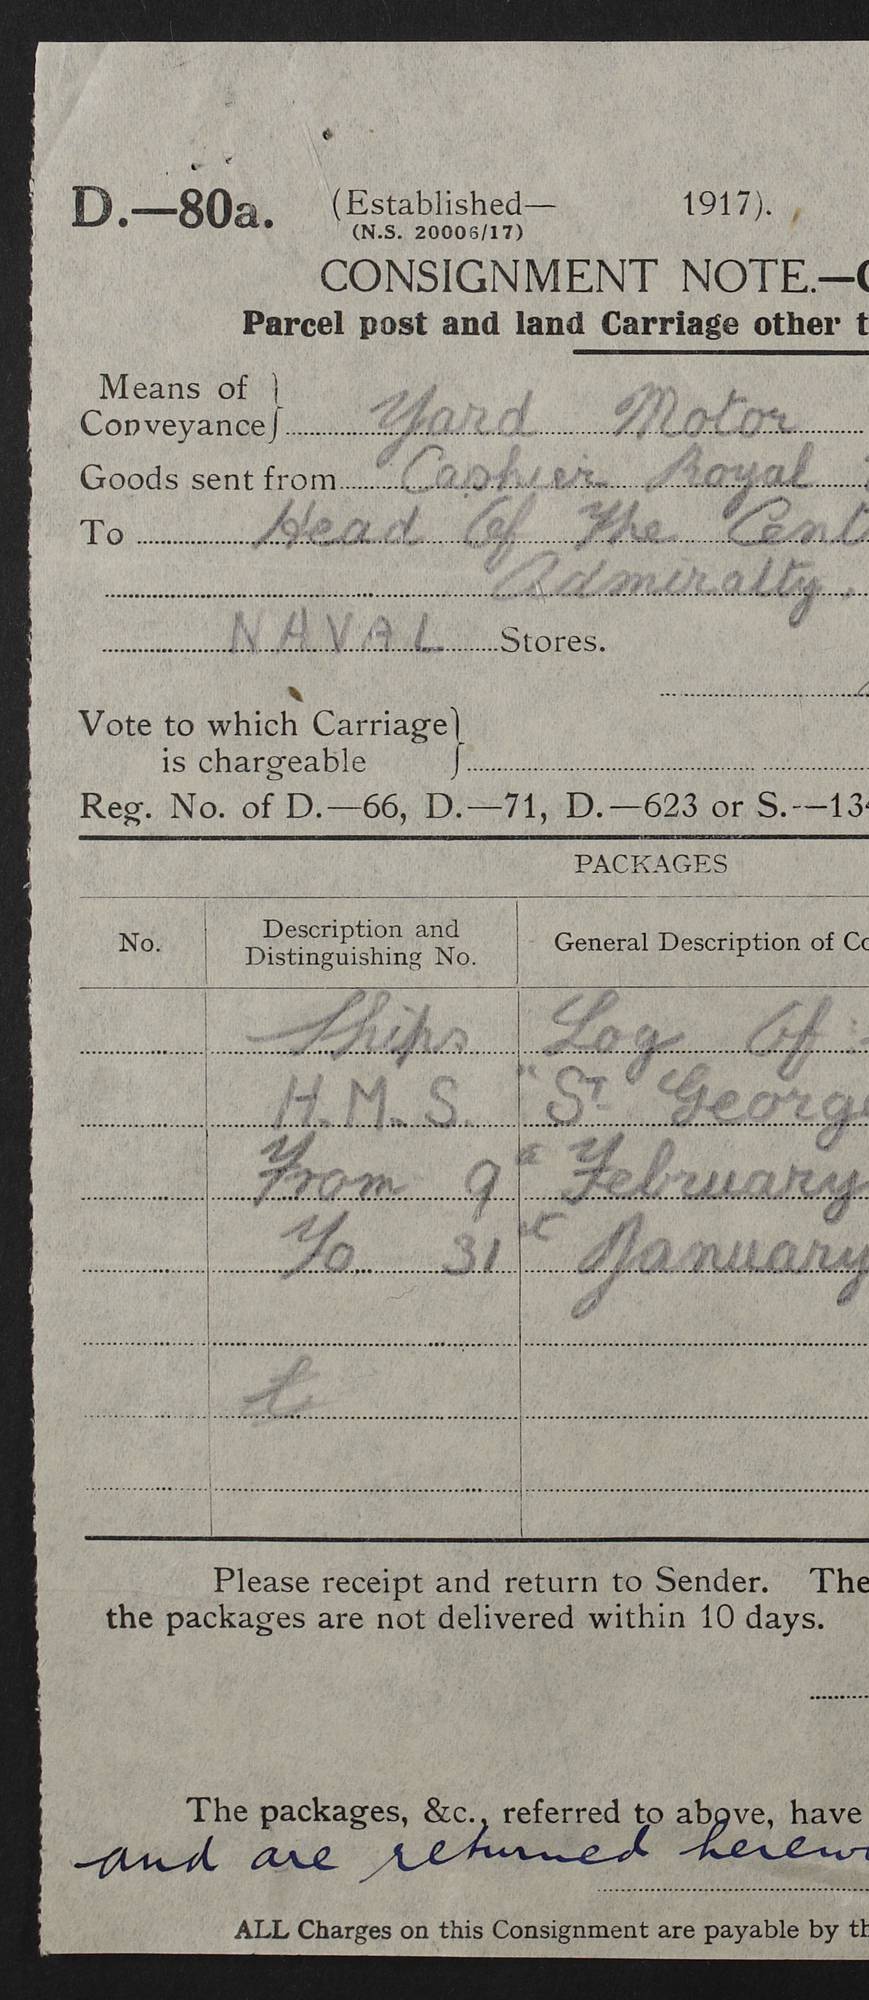 D.—80a. (Established— 1917).
(N.S. 20006/17)
CONSIGNMENT NOTE.—
Parcel post and land Carriage other
Means of
Conveyance Yard Motor
Goods sent from Cashier Royal
To Head Of The Cent
Admiralty.
NAVAL Stores.
Vote to which Carriage
is chargeable
Reg. No. of D.—66, D.—71, D.—623 or S.—13
PACKAGES
No. Description and Distinguishing No. General Description of Co
Ships Log Of
H.M.S. "St. George
From 9th February
To 31st January
Please receipt and return to Sender. The
the packages are not delivered within 10 days.
The packages, &c., referred to above, have
and are returned herew
ALL Charges on this Consignment are payable by th